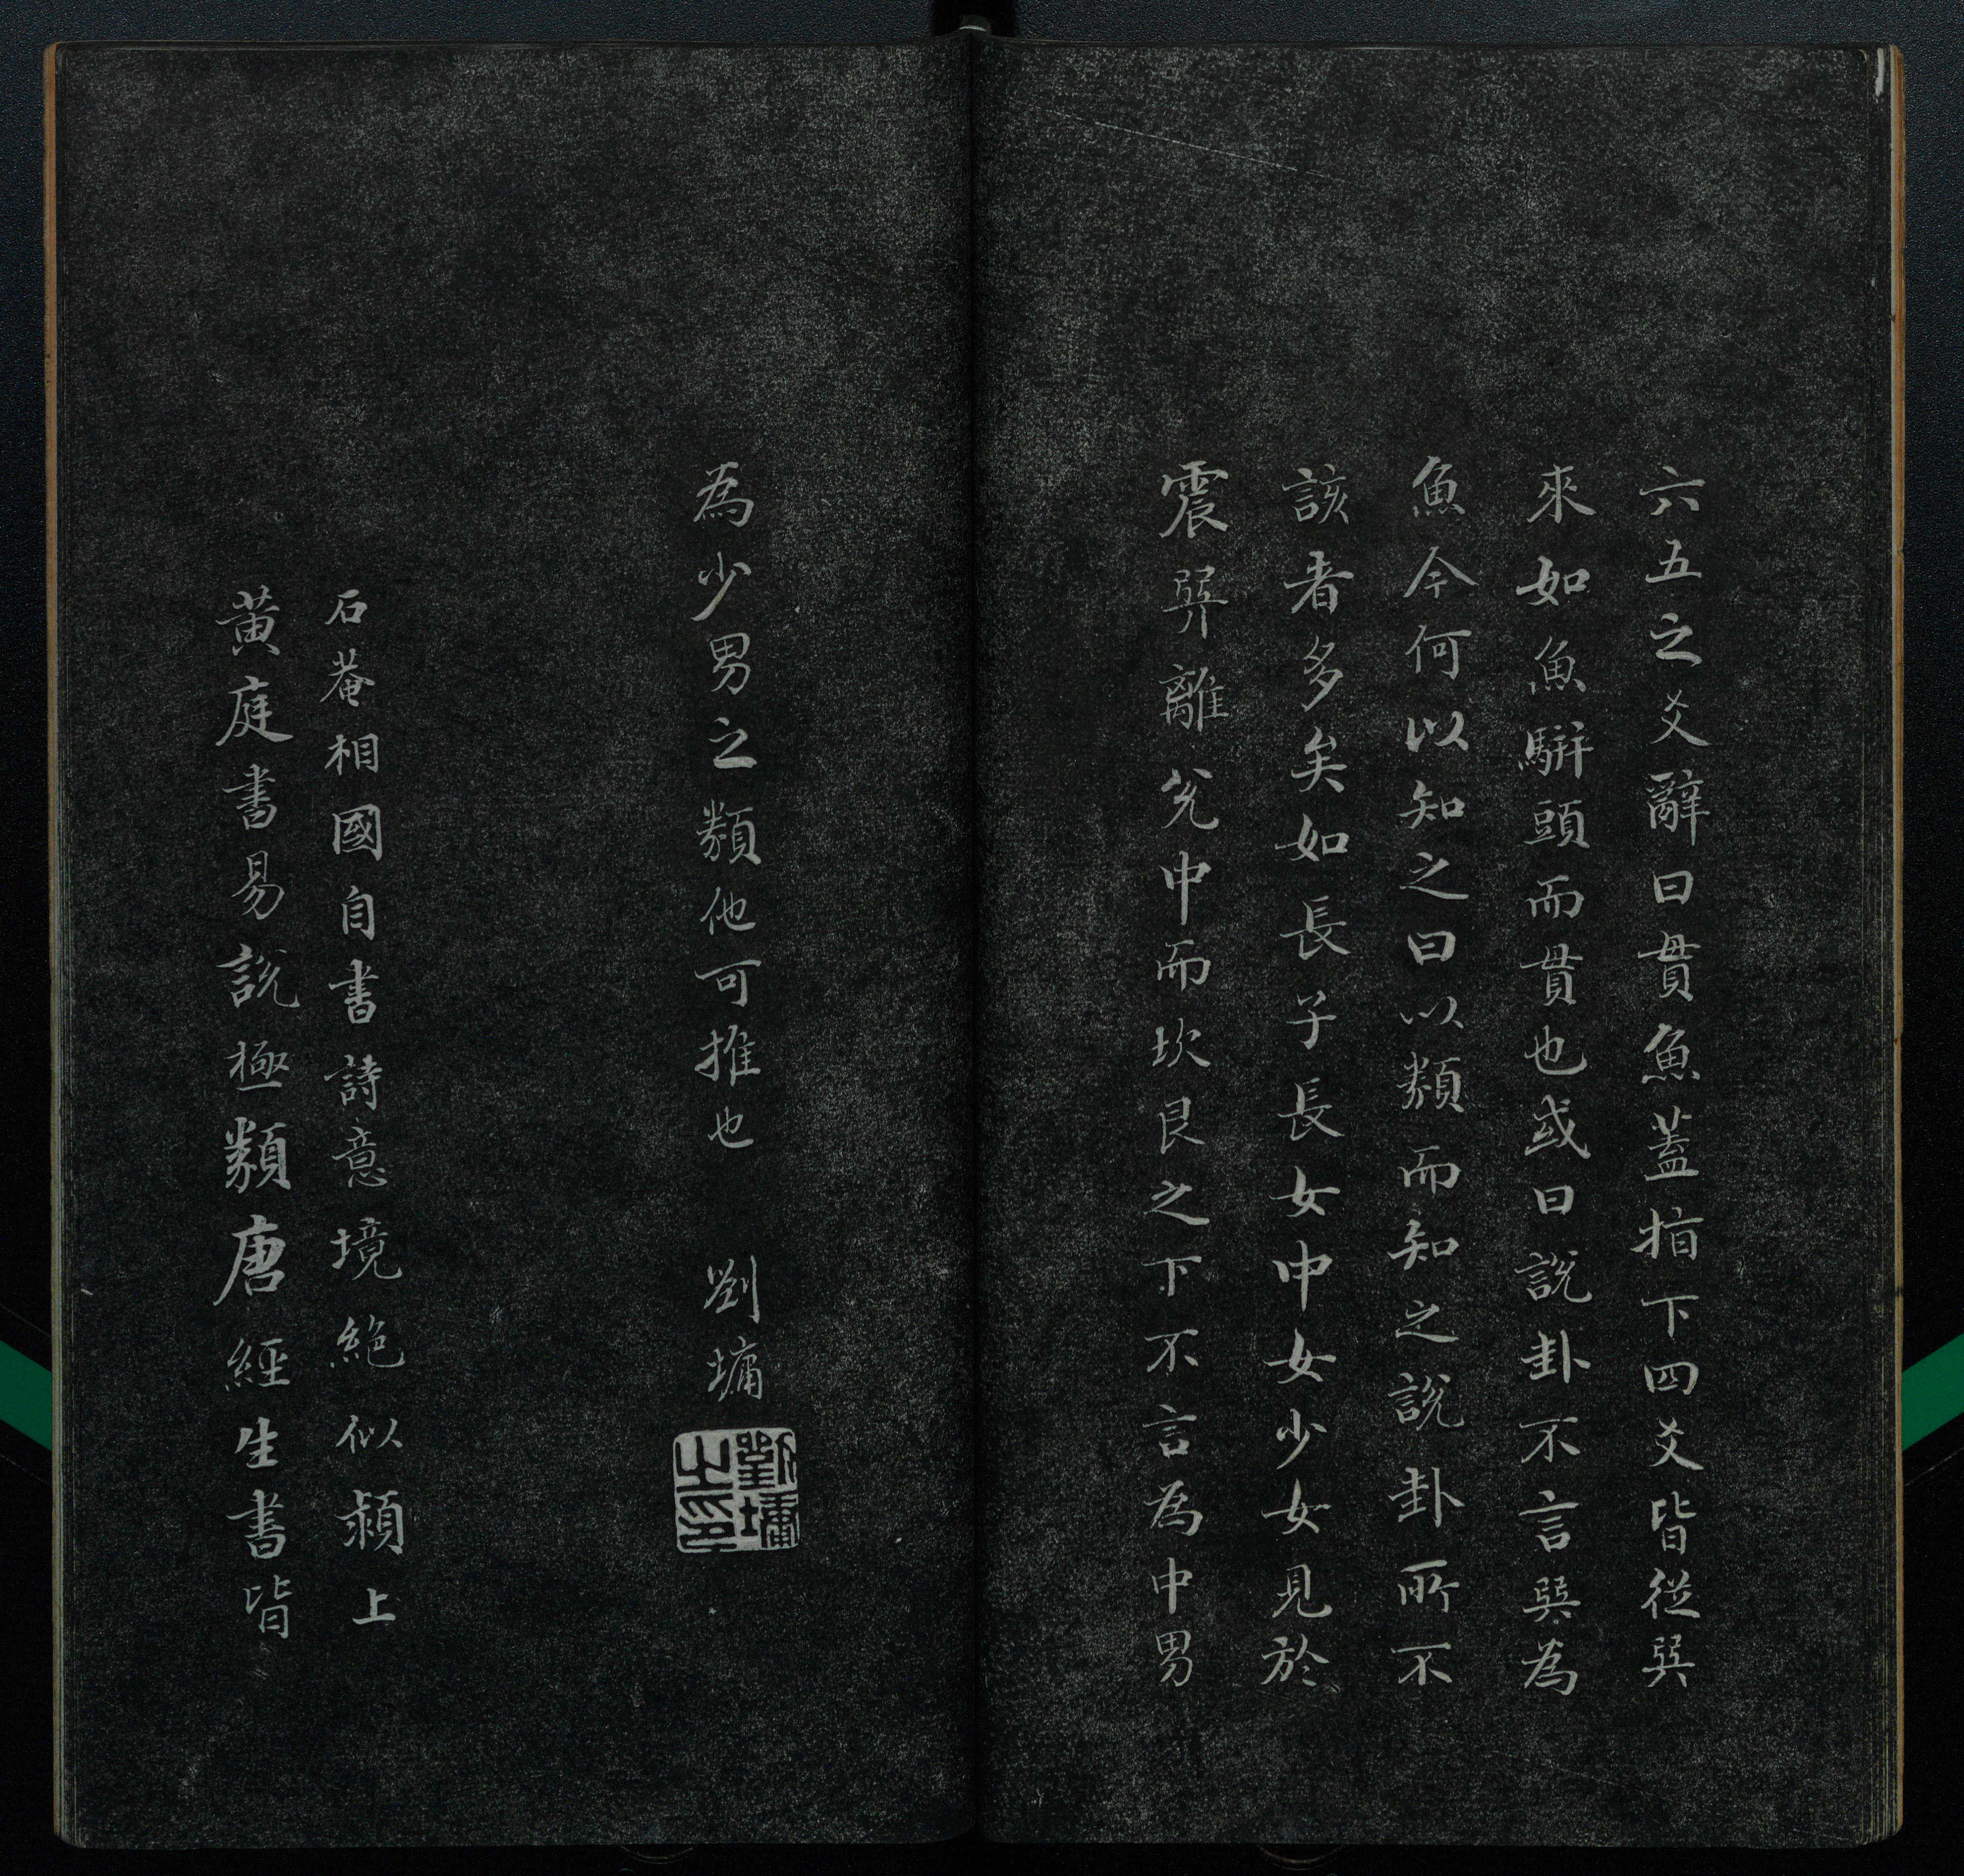 六五之爻辭曰貫魚蓋指下四爻皆從巽
來如魚駢頭而貫也或曰說卦不言巽為
魚今何以知之曰以類而知之說卦所不
該者多矣如長子長女中女少女見於
震巽離兌中而坎艮之下不言為中男
為少男之類他可推也 劉墉
劉墉之印
石菴相國自書詩意境絕似潁上
黃庭書易說極類唐經生書皆